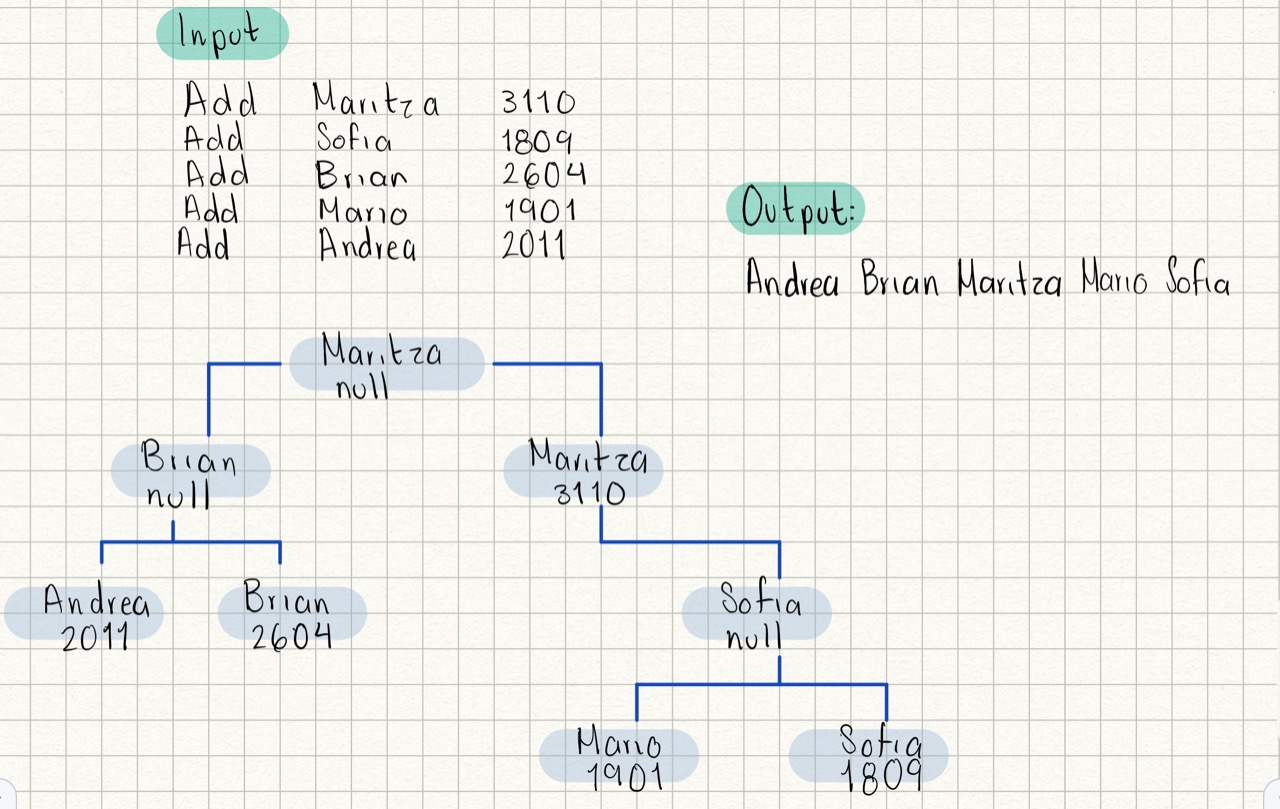 Input
Add Maritza 3110
Add Sofia 1809
Add Brian 2604
Add Mario 1901
Add Andrea 2011
Output:
Andrea Brian Maritza Mario Sofia
Maritza
null
Brian
null
Maritza
3110
Andrea
2011
Brian
2604
Sofia
null
Mario
1901
Sofia
1809